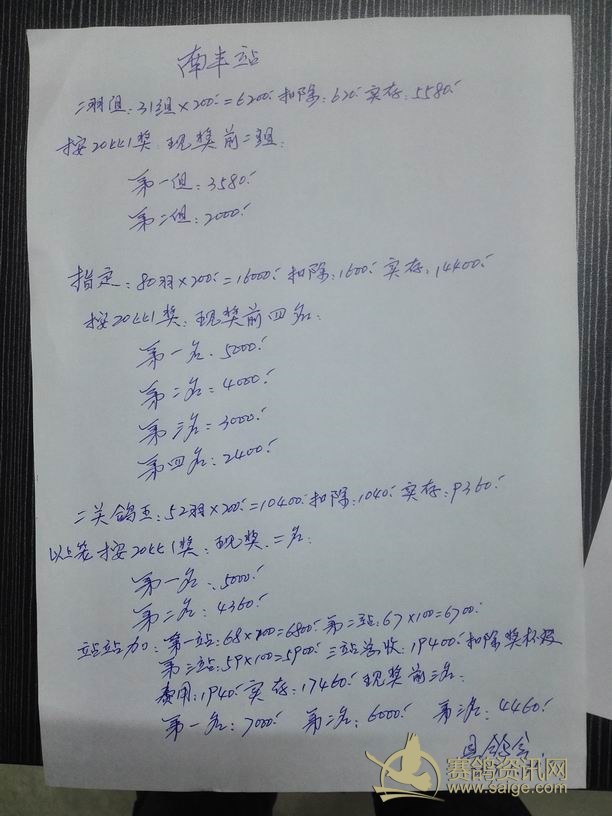 南丰站
二羽组:31组×200=6200扣除:620实存:5580
按20比1奖:现奖前二组:
第一组:3580
第二组:2000
指定:80羽×200=16000扣除:1600实存:14400
按20比1奖:现奖前四名:
第一名:5000
第二名:4000
第三名:3000
第四名:2400
二关鸽王:52羽×200=10400扣除:1040实存:9360
以上笼按20比1奖:现奖:二名:
第一名:5000
第二名:4360
站站加:第一站:68×100=6800第二站:67×100=6700
第三站:59×100=5900三站总收:19400扣除奖杯及
费用:1940实存:17460现奖前三名:
第一名:7000 第二名:6000 第三名:4460
县鸽会
赛鸽资讯网
www.saige.com